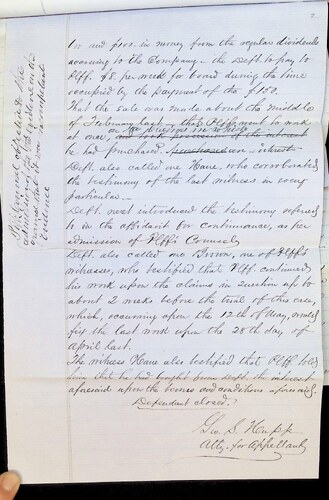 7
in and from in money from the regular dividends
accruing to the Company — the Deft. to pay to
Plff. $8. per week for board during the time
occupied by the payment of the $150.
That the sale was made about the middle
of February last & that Plff. went to work
at once, on the
he had purchased interest.
Deft. also called one Hare, who corroborated
the testimony of the last witness in every
particular.
Deft. next introduced the testimony referred
to in the affidavit for continuance, as per
admission of Plff's Counsel.
Deft. also called one Brown, one of Plff's
witnesses, who testified that Plff. continued
his work upon the claims in question up to
about 2 weeks before the trial of this case,
which, occurring upon the 12th of May, would
fix the last work upon the 28th day of
April last.
The witness Hare also testified that Plff. told
him that he had bought from Deft. the interest
aforesaid upon the terms and conditions aforesaid.
Defendant closed.
Geo. S. Hupp
Atty. for Appellant
Plaintiff objected to the
ground that it was incompetent
evidence